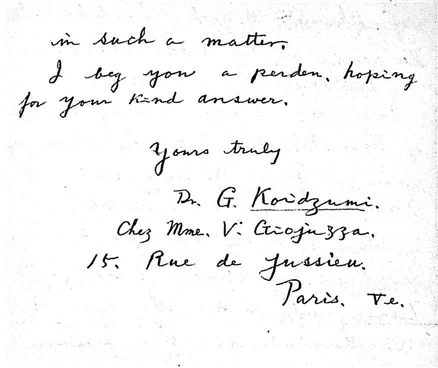 in such a matter.
I beg you a perden, hoping
for your kind answer.
Yours truly
Dr. G. Koidzumi.
Chez Mme. V. Giojuzza.
15. Rue de Jussieu.
Paris. Ve.